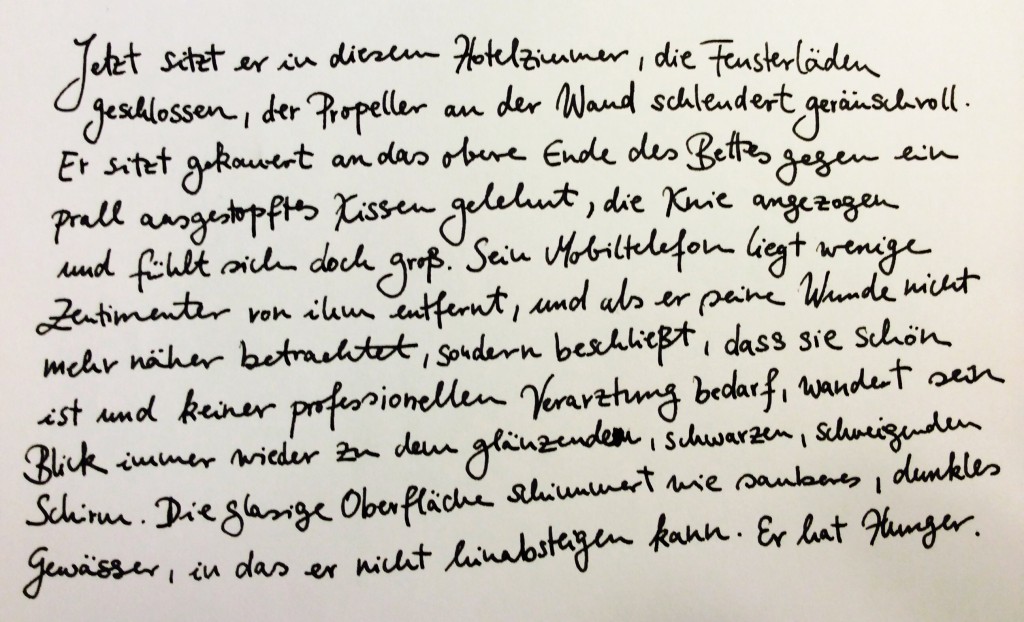 Jetzt sitzt er in diesem Hotelzimmer, die Fensterläden
geschlossen, der Propeller an der Wand schlendert geräuschvoll.
Er sitzt gekauert an das obere Ende des Bettes gegen ein
prall ausgestopftes Kissen gelehnt, die Knie angezogen
und fühlt sich doch groß. Sein Mobiltelefon liegt wenige
Zentimenter von ihm entfernt, und als er seine Wunde nicht
mehr näher betrachtet, sondern beschließt, dass sie schön
ist und keiner professionellen Verarztung bedarf, wandert sein
Blick immer wieder zu dem glänzenden, schwarzen, schweigenden
Schirm. Die glasige Oberfläche schimmert wie sauberes, dunkles
Gewässer, in das er nicht hinabsteigen kann. Er hat Hunger.